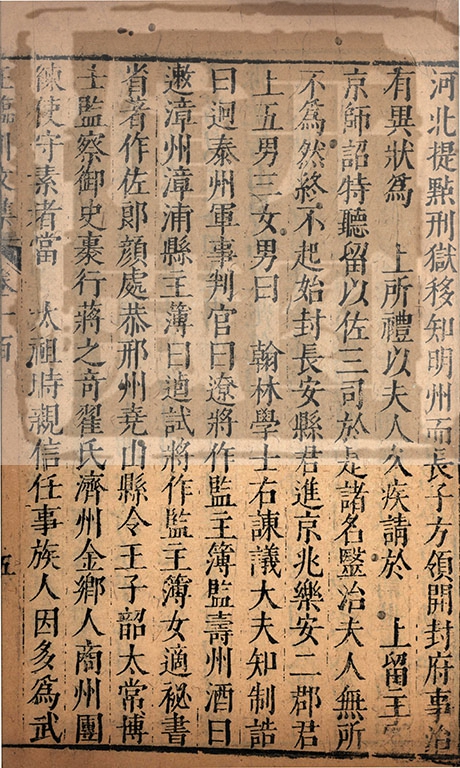 河北提點刑獄移知明州而長子方領開封府事治
有異狀爲　上所禮以夫人久疾請於　上留王
京師詔特聽留以佐三司於是諸名毉治夫人無所
不爲然終不起始封長安縣君進京兆樂安二郡君
上五男三女男曰　翰林學士右諫議大夫知制誥
曰迥泰州軍事判官曰遼將作監主簿監壽州酒曰
遬漳州漳浦縣主簿曰試將作監主簿女適祕書
省著作佐郎顔處恭邢州堯山縣令王子韶太常博
士監察御史裏行蔣之竒翟氏濟州金鄉人商州團
練使守素者當　太祖時親信任事族人因多爲武
王臨川文集　卷一百　五